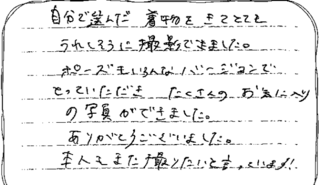 自分で選んだ着物をきてとても
うれしそうに撮影できました。
ポーズもいろんなバージョンで
とっていただき たくさんのお気に入り
の写真ができました。
ありがとうございました。
本人もまた撮りたいと言っています!